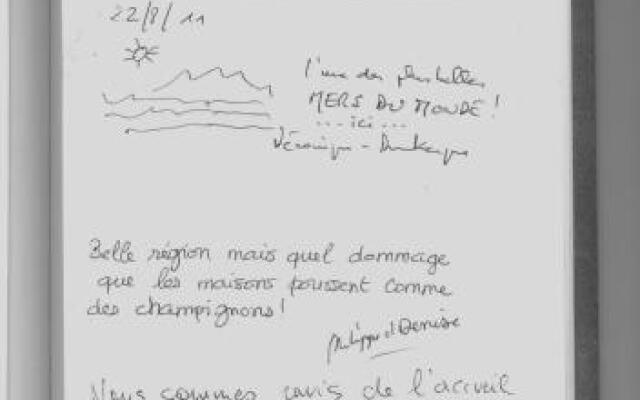 22/8/11
l'une des plus belles
MERS DU MONDE !
... ici ...
Véronique - Dunkerque
Belle région mais quel dommage
que les maisons poussent comme
des champignons !
Philippe et Denise
Nous sommes ravis de l'accueil